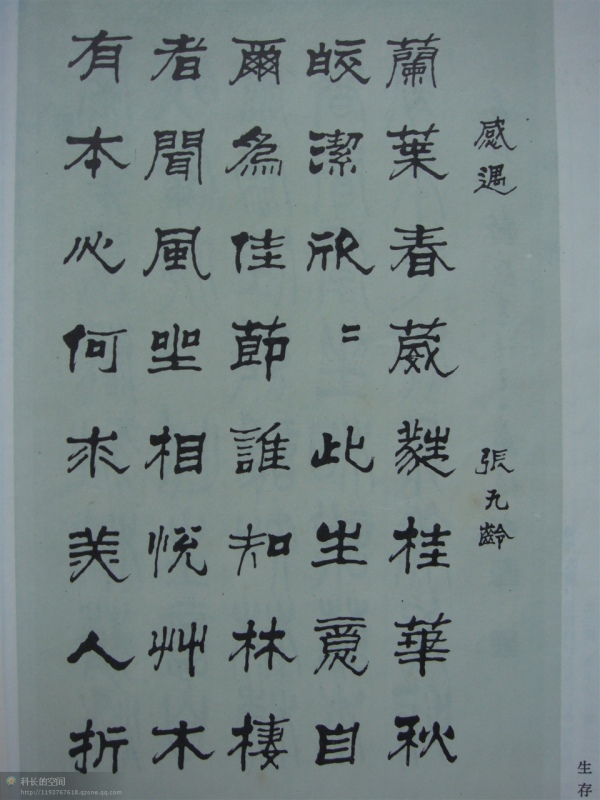 感遇 張九齡
蘭葉春葳蕤桂華秋
皎潔欣〻此生意自
爾為佳節誰知林棲
者聞風坐相悅艸木
有本心何求美人折
生存
科长的空间
http://1193767618.qzone.qq.com